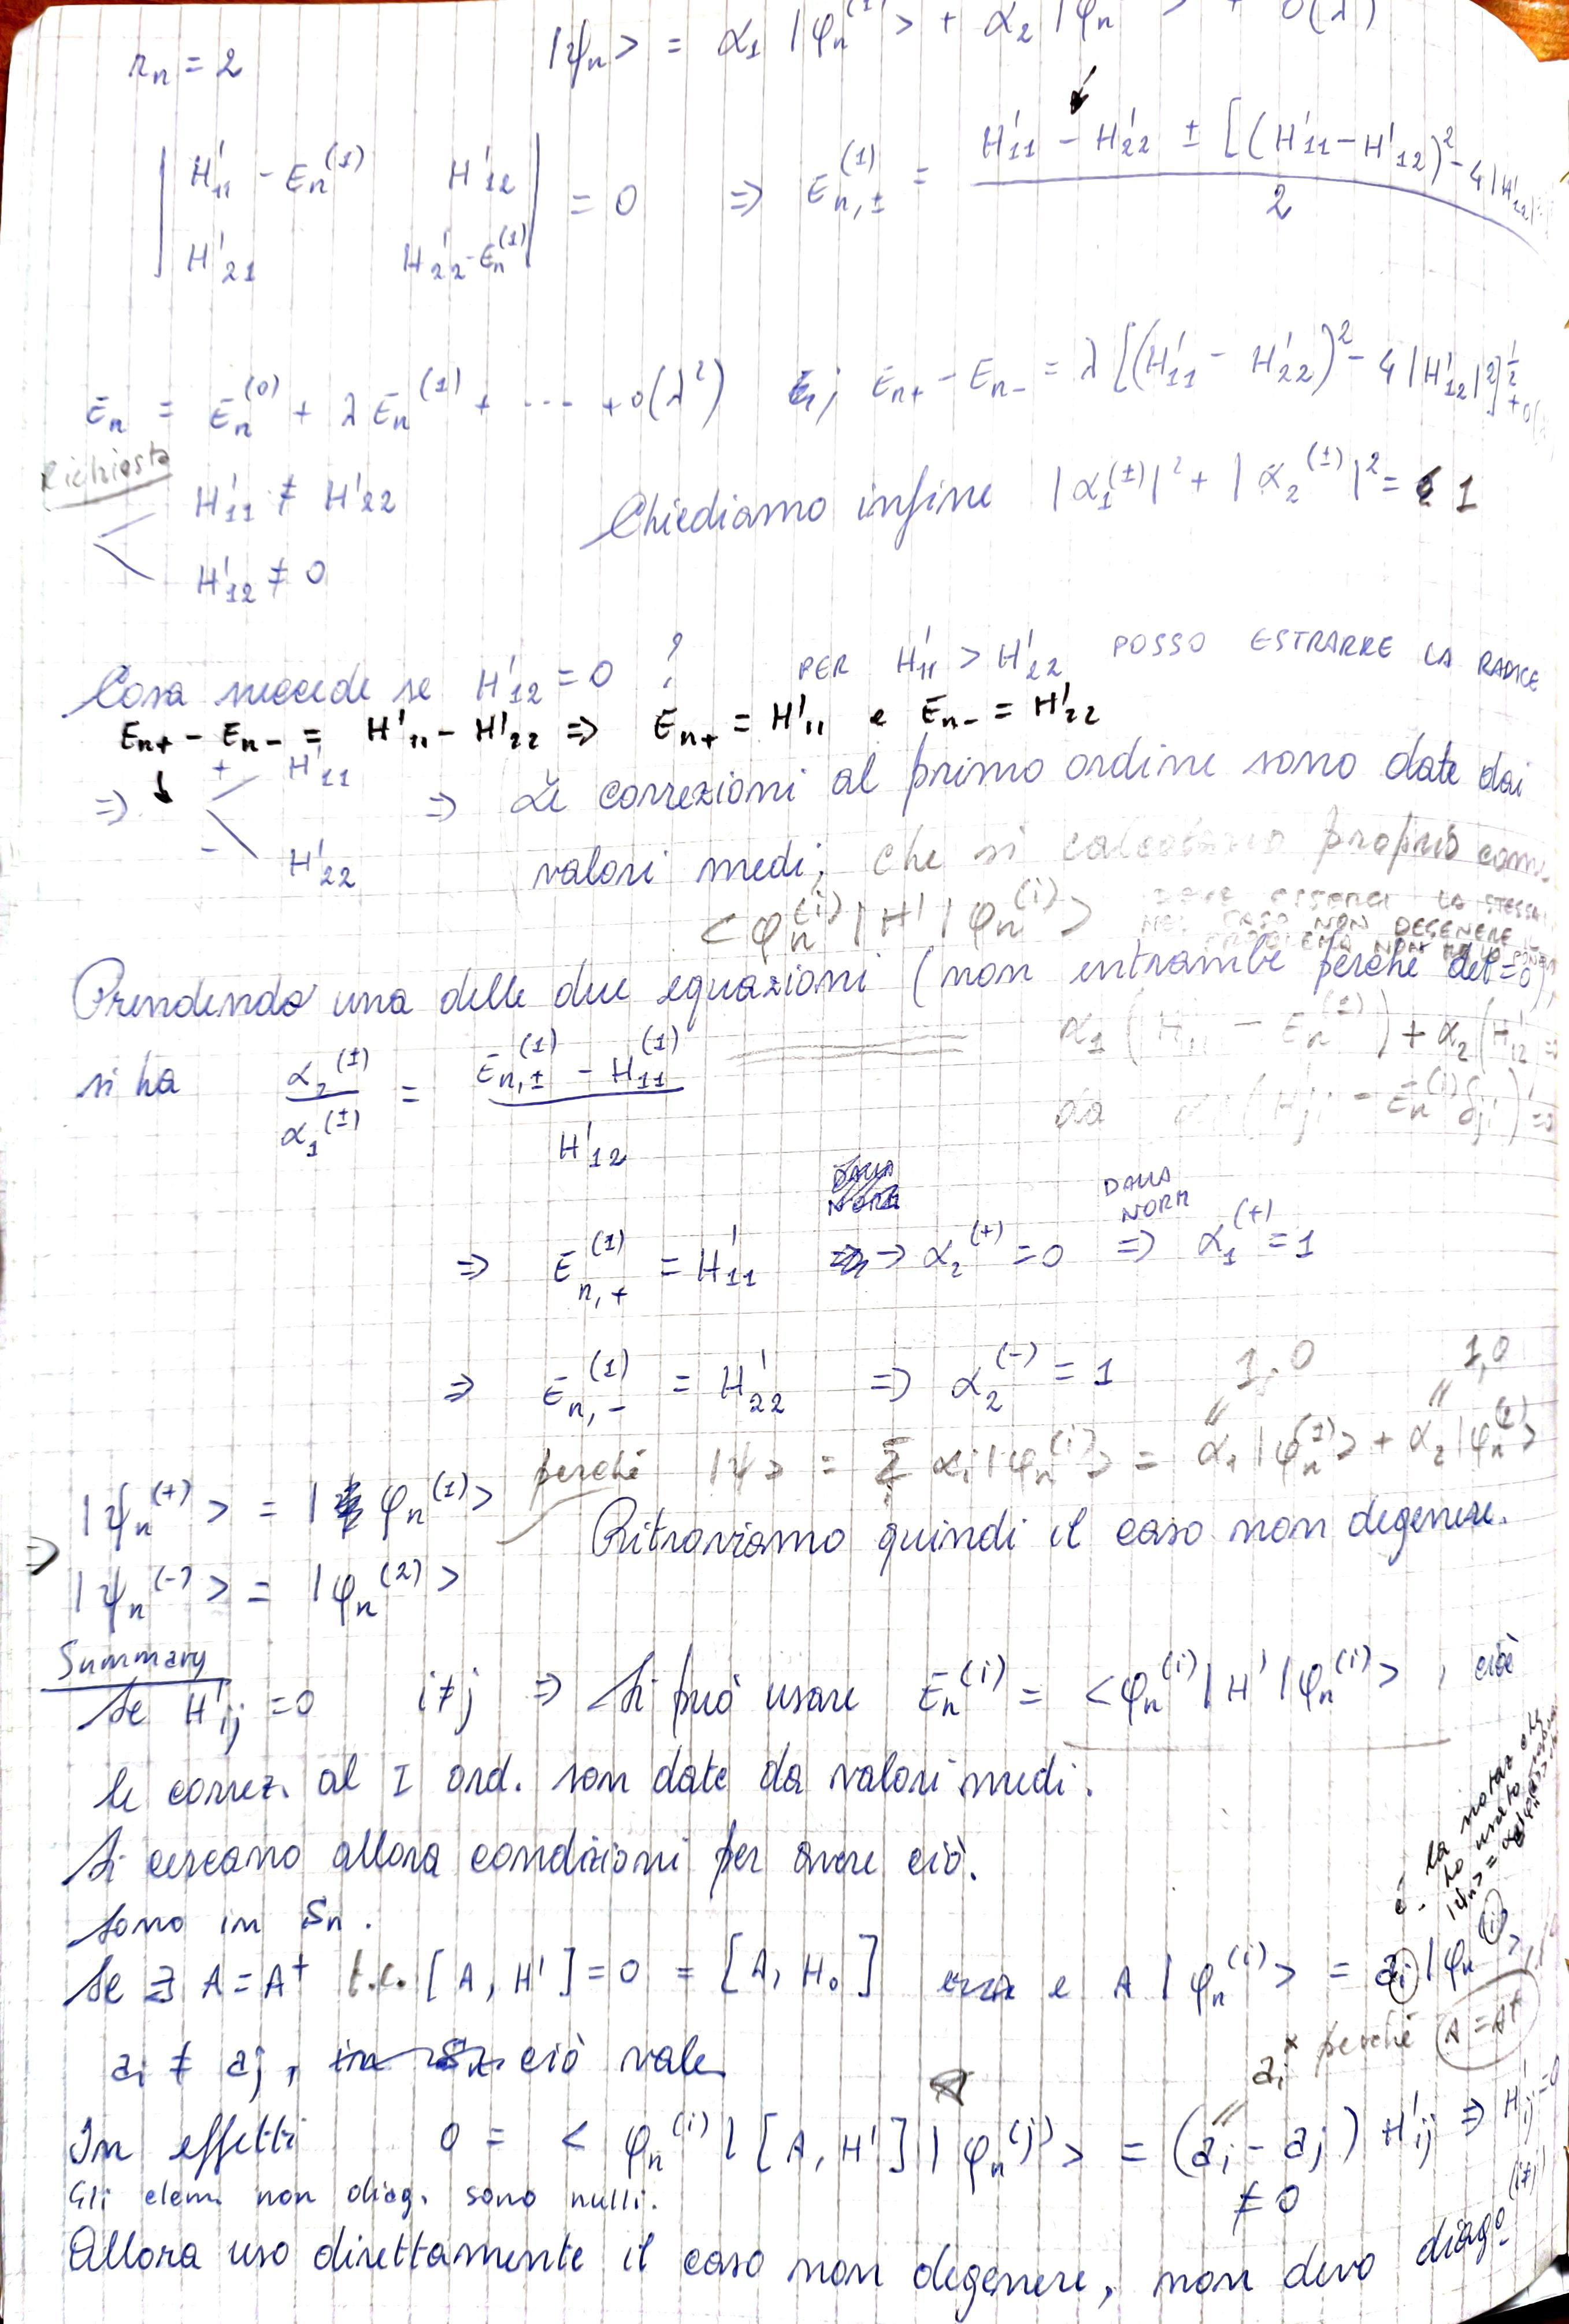 r_n = 2    |ψ_n> = α_1 |φ_n^(1)> + α_2 |φ_n > + O(λ)
| H'_11 - E_n^(1)    H'_12 |
| H'_21    H'_22 - E_n^(1) | = 0 ⇒ E_{n,±}^(1) = (H'_11 - H'_22 ± [(H'_11 - H'_12)^2 - 4|H'_22|) / 2
E_n = E_n^(0) + λ E_n^(1) + ... + o(λ^2) ; E_n+ - E_n- = λ [(H'_11 - H'_22)^2 - 4 |H'_12|^2]^{1/2} + o(
Richiesta
H'_11 ≠ H'_22    Chiediamo infine |α_1^(±)|^2 + |α_2^(±)|^2 = 1
H'_12 ≠ 0
Cosa succede se H'_12 = 0 ? PER H'_11 > H'_22 POSSO ESTRARRE LA RADICE
E_n+ - E_n- = H'_11 - H'_22 ⇒ E_n+ = H'_11 e E_n- = H'_22
⇒ ↓ + H'_11 ⇒ Le correzioni al primo ordine sono date dai
- H'_22    valori medi, che si calcolano proprio come
<φ_n^(i) | H' | φ_n^(i)>    LA STESSA
NEL CASO NON DEGENERE
PROBLEMA NON
Prendendo una delle due equazioni (non entrambe perché det=0),
α_1 (H'_11 - E_n^(1)) + α_2 (H'_12 =
si ha α_2^(±) / α_1^(±) = (E_{n,±}^(1) - H_11^(1)) / H'_12
da
DALLA NORM    DALLA NORM
⇒ E_{n,+}^(1) = H'_11 → α_2^(+) = 0 ⇒ α_1^(+) = 1
⇒ E_{n,-}^(1) = H'_22 ⇒ α_2^(-) = 1    1,0    1,0
perché |ψ> = Σ α_i |φ_n^(i)> = α_1 |φ_n^(1)> + α_2 |φ_n^(2)>
⇒ |ψ_n^(+)> = |φ_n^(1)>
Ritroviamo quindi il caso non degenere.
|ψ_n^(-)> = |φ_n^(2)>
Summary
Se H'_ij = 0    i≠j ⇒ Si può usare E_n^(i) = <φ_n^(i) | H' | φ_n^(i)>, cioè
le correz. al I ord. son date da valori medi.
Si cercano allora condizioni per avere ciò.
Sono in S_n.
Se ∃ A = A† t.c. [A, H'] = 0 = [A, H_0] e A |φ_n^(i)> = a_i |φ_n^(i)>,
a_i ≠ a_j, in S_n ciò vale    a_i* perché A = A†
In effetti 0 = <φ_n^(i) | [A, H'] | φ_n^(j)> = (a_i - a_j) H'_ij ⇒ H'_ij = 0
≠ 0    (i≠j)
Gli elem. non diag. sono nulli.
Allora uso direttamente il caso non degenere, non devo diago